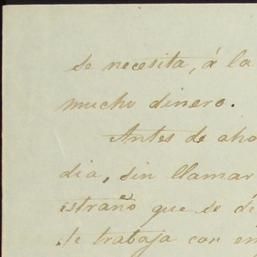 se necesita, á la
mucho dinero.
Antes de aho
dia, sin llamar
estraño que se di
te trabaja con en